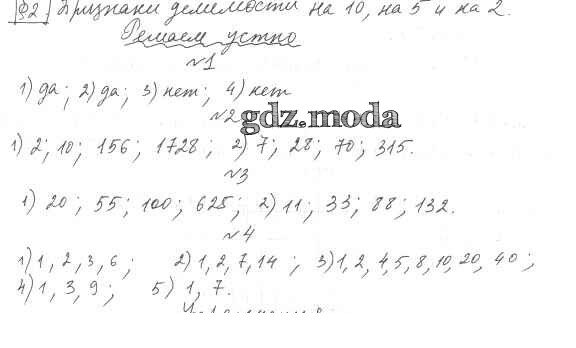 §2. Признаки делимости на 10, на 5 и на 2.
Решаем устно
№1
1) да; 2) да; 3) нет; 4) нет
№2
gdz.moda
1) 2; 10; 156; 1728; 2) 7; 28; 70; 315.
№3
1) 20; 55; 100; 625; 2) 11; 33; 88; 132.
№4
1) 1, 2, 3, 6; 2) 1, 2, 7, 14; 3) 1, 2, 4, 5, 8, 10, 20, 40;
4) 1, 3, 9; 5) 1, 7.